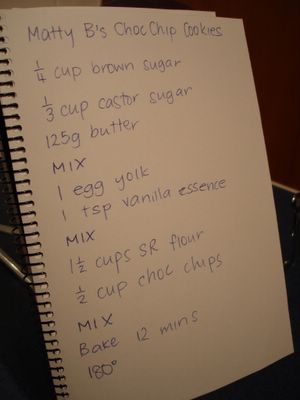 Matty B's Choc Chip Cookies
1/4 cup brown sugar
1/3 cup castor sugar
125g butter
MIX
1 egg yolk
1 tsp vanilla essence
MIX
1 1/2 cups SR flour
1/2 cup choc chips
MIX
Bake 12 mins
180°